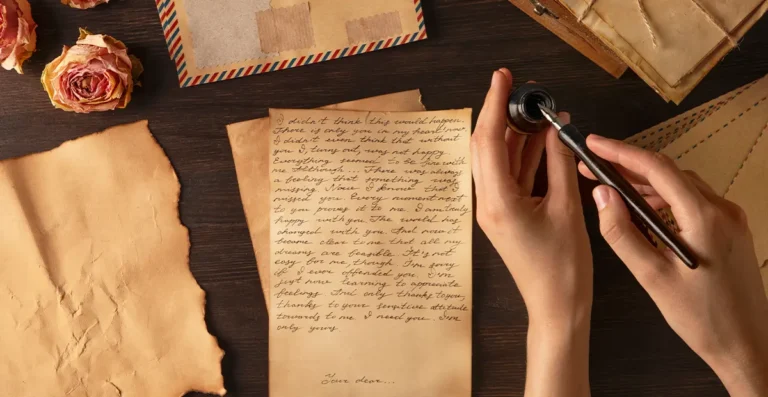 I didn't think this would happen.
There is only you in my heart now.
I didn't even think that without
you I, turns out, was not happy
Everything seemed to be fine with
me Although... There was always
a feeling that something was
missing Now I know that I
missed you. Every moment next
to you proves it to me I am truly
happy with you The world has
changed with you And now it
became clear to me that all my
dreams are feasible. It's not
easy for me though I'm sorry
if I ever offended you I'm
just now learning to appreciate
feelings And only thanks to you,
thanks to your sensitive attitude
towards to me I need you I'm
only yours
Your dear...